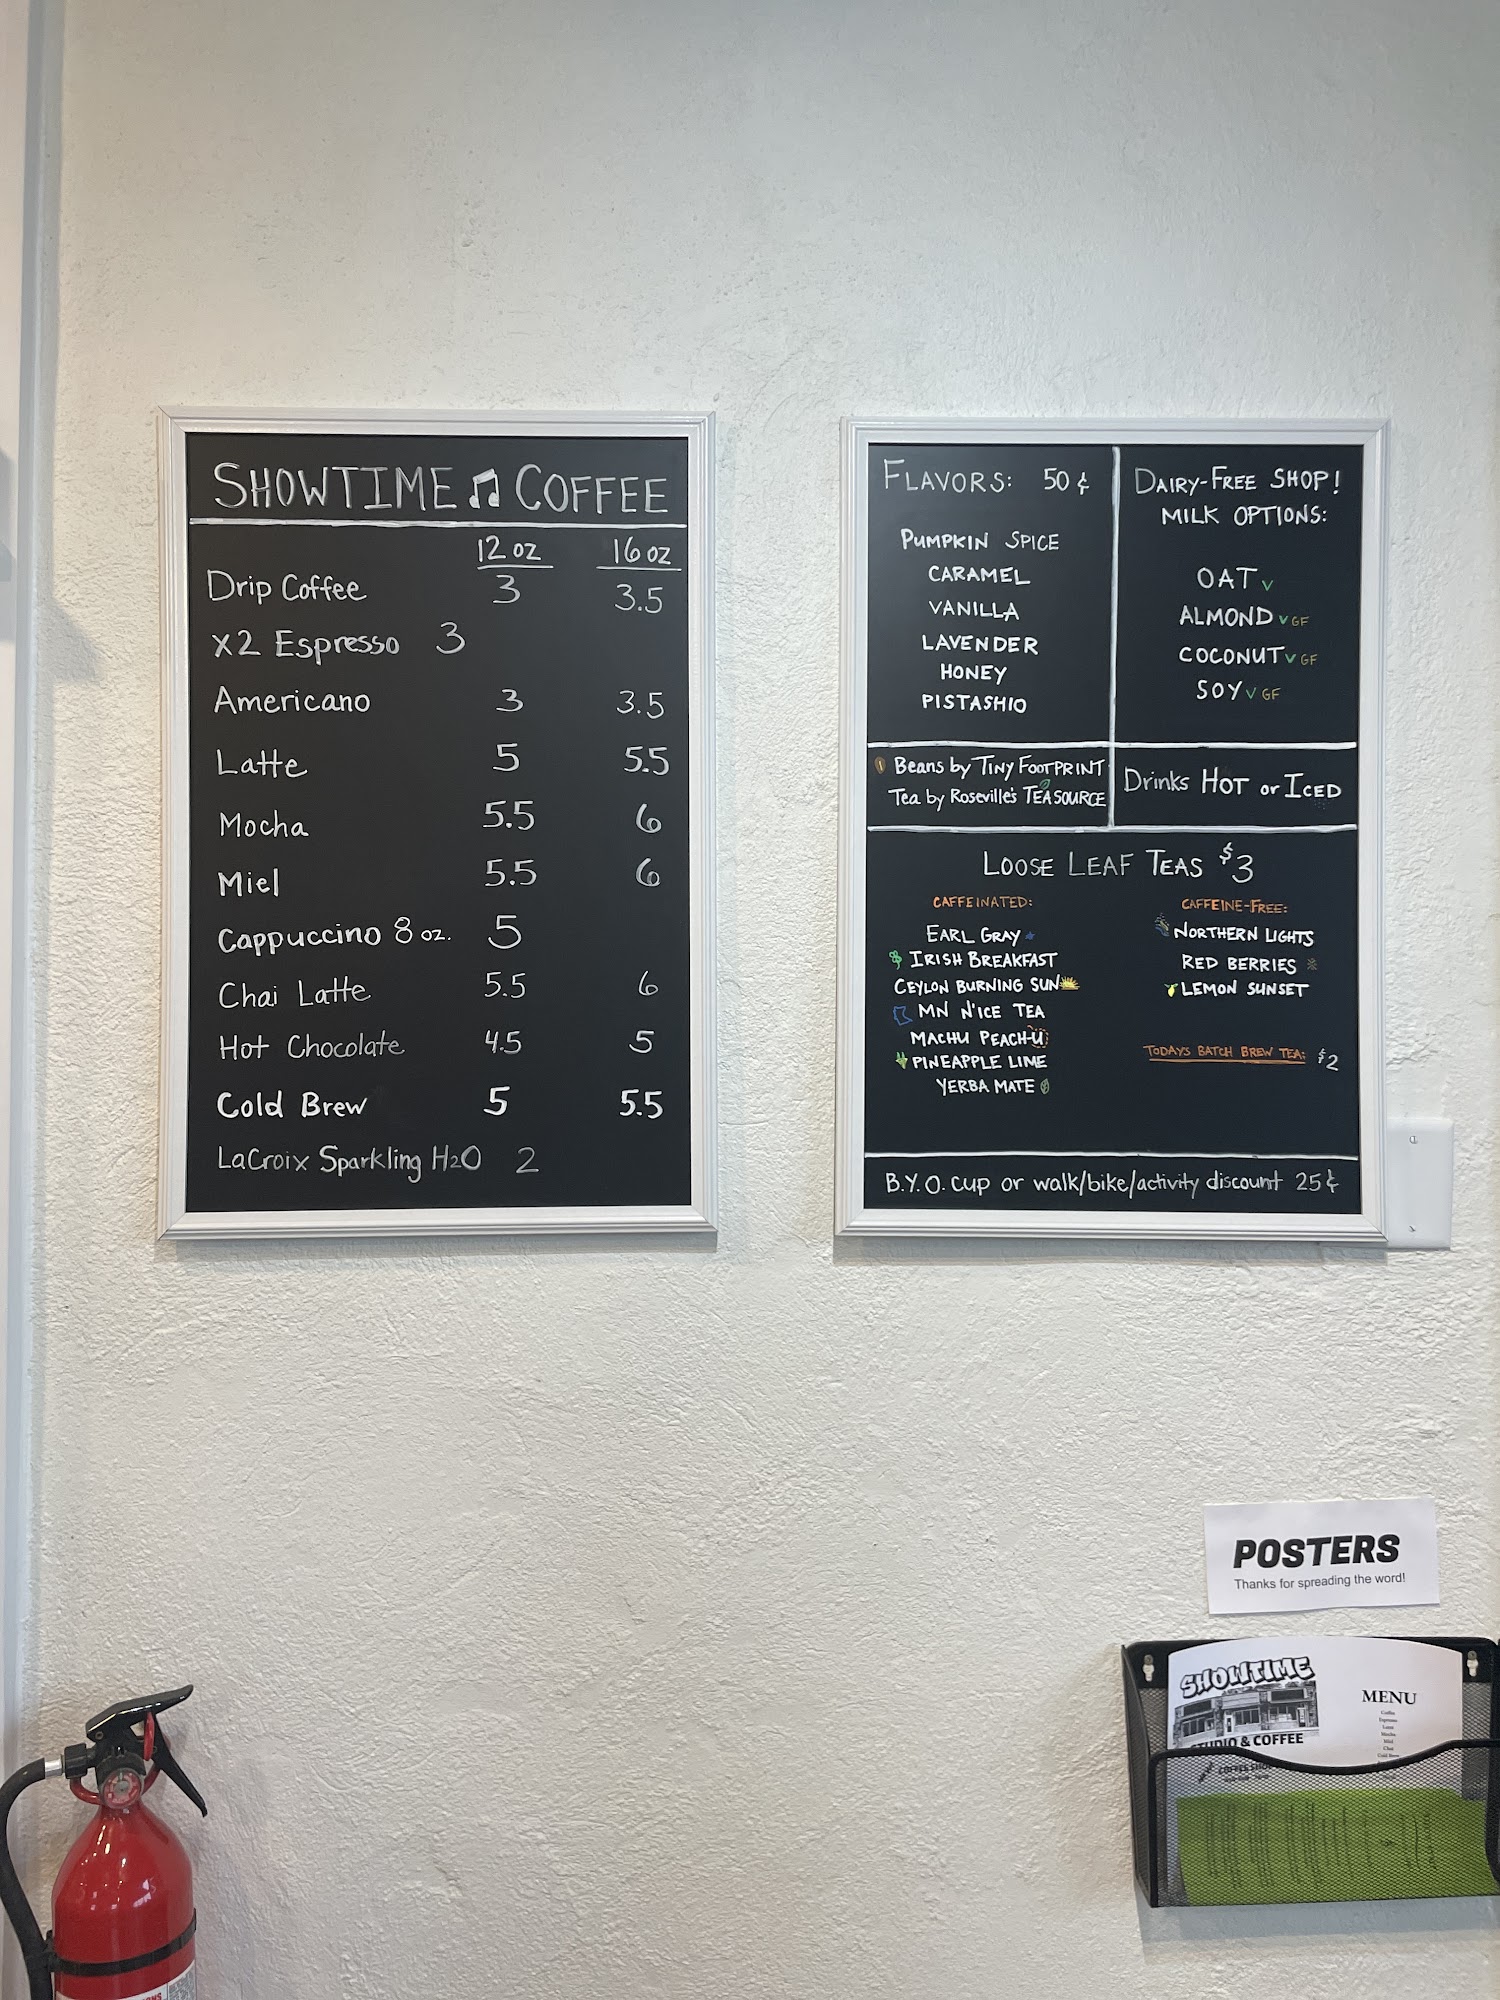 SHOWTIME COFFEE
12 oz 16 oz
Drip Coffee 3 3.5
x2 Espresso 3
Americano 3 3.5
Latte 5 5.5
Mocha 5.5 6
Miel 5.5 6
Cappuccino 8 oz. 5
Chai Latte 5.5 6
Hot Chocolate 4.5 5
Cold Brew 5 5.5
LaCroix Sparkling H2O 2
FLAVORS: 50¢
PUMPKIN SPICE
CARAMEL
VANILLA
LAVENDER
HONEY
PISTASHIO
DAIRY-FREE SHOP!
MILK OPTIONS:
OAT V
ALMOND V GF
COCONUT V GF
SOY V GF
Beans by TINY FOOTPRINT
Tea by Roseville's TEASOURCE
Drinks HOT or ICED
LOOSE LEAF TEAS $3
CAFFEINATED:
EARL GRAY
IRISH BREAKFAST
CEYLON BURNING SUN
MN N'ICE TEA
MACHU PEACH-U
PINEAPPLE LIME
YERBA MATE
CAFFEINE-FREE:
NORTHERN LIGHTS
RED BERRIES
LEMON SUNSET
TODAYS BATCH BREW TEA: $2
B.Y.O. cup or walk/bike/activity discount 25¢
POSTERS
Thanks for spreading the word!
SHOWTIME
STUDIO & COFFEE
MENU
Coffee
Espresso
Latte
Mocha
Miel
Chai
Cold Brew